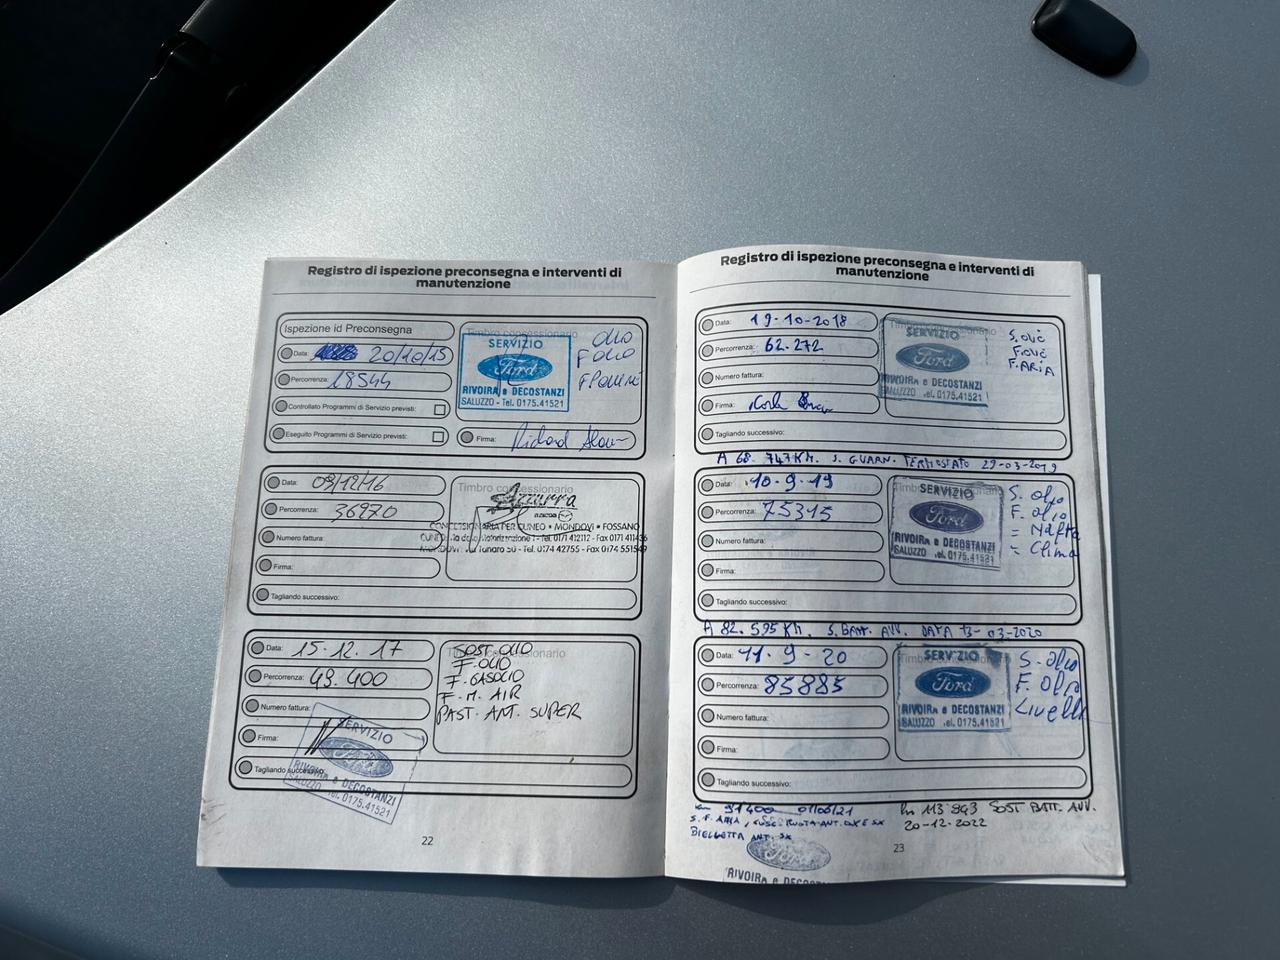 Registro di ispezione preconsegna e interventi di
manutenzione
Ispezione id Preconsegna
Data: 20/10/15
Percorrenza: 18544
Controllato Programmi di Servizio previsti:
Eseguito Programmi di Servizio previsti:
Timbro concessionario
SERVIZIO
Ford
RIVOIRA e DECOSTANZI
SALUZZO - Tel. 0175.41521
OLIO
F OLIO
Firma:
Data: 09/12/16
Percorrenza: 36270
Numero fattura:
Firma:
Tagliando successivo:
Timbro concessionario
Azzurra
mazda
CONCESSIONARIA PER CUNEO • MONDOVì • FOSSANO
Tel. 0171 412112 - Fax 0171 411436
Tanaro 50 - Tel. 0174 42755 - Fax 0174 551549
Data: 15.12.17
Percorrenza: 49.400
Numero fattura:
Firma:
Tagliando successivo:
SOST OLIO
F. OLIO
F. GASOLIO
F. M. AIR
PAST. ANT. SUPER
SERVIZIO
Ford
RIVOIRA e DECOSTANZI
SALUZZO Tel. 0175.41521
22
Registro di ispezione preconsegna e interventi di
manutenzione
Data: 19-10-2018
Percorrenza: 62.272
Numero fattura:
Firma:
Tagliando successivo:
SERVIZIO
Ford
RIVOIRA e DECOSTANZI
SALUZZO Tel. 0175.41521
S. OLIO
F. OLIO
F. ARIA
A 68.747 KM. S. GUARN. TERMOSTATO 29-03-2019
Data: 10-9-19
Percorrenza: 75315
Numero fattura:
Firma:
Tagliando successivo:
SERVIZIO
Ford
RIVOIRA e DECOSTANZI
SALUZZO Tel. 0175.41521
S. olio
F. olio
= Nafta
= Clima
A 82.595 KM. S. BATT. AVV. DATA 13-03-2020
Data: 11-9-20
Percorrenza: 85885
Numero fattura:
Firma:
Tagliando successivo:
SERVIZIO
Ford
RIVOIRA e DECOSTANZI
SALUZZO Tel. 0175.41521
S. Olio
F. Olio
Livelli
Km 91400 01/06/21
S. F. ARIA, CUSC. RUOTA ANT. DX E SX
BIELLETTA ANT. SX
Ford
RIVOIRA e DECOSTANZI
Km 113 943 SOST BATT. AVV.
20-12-2022
23